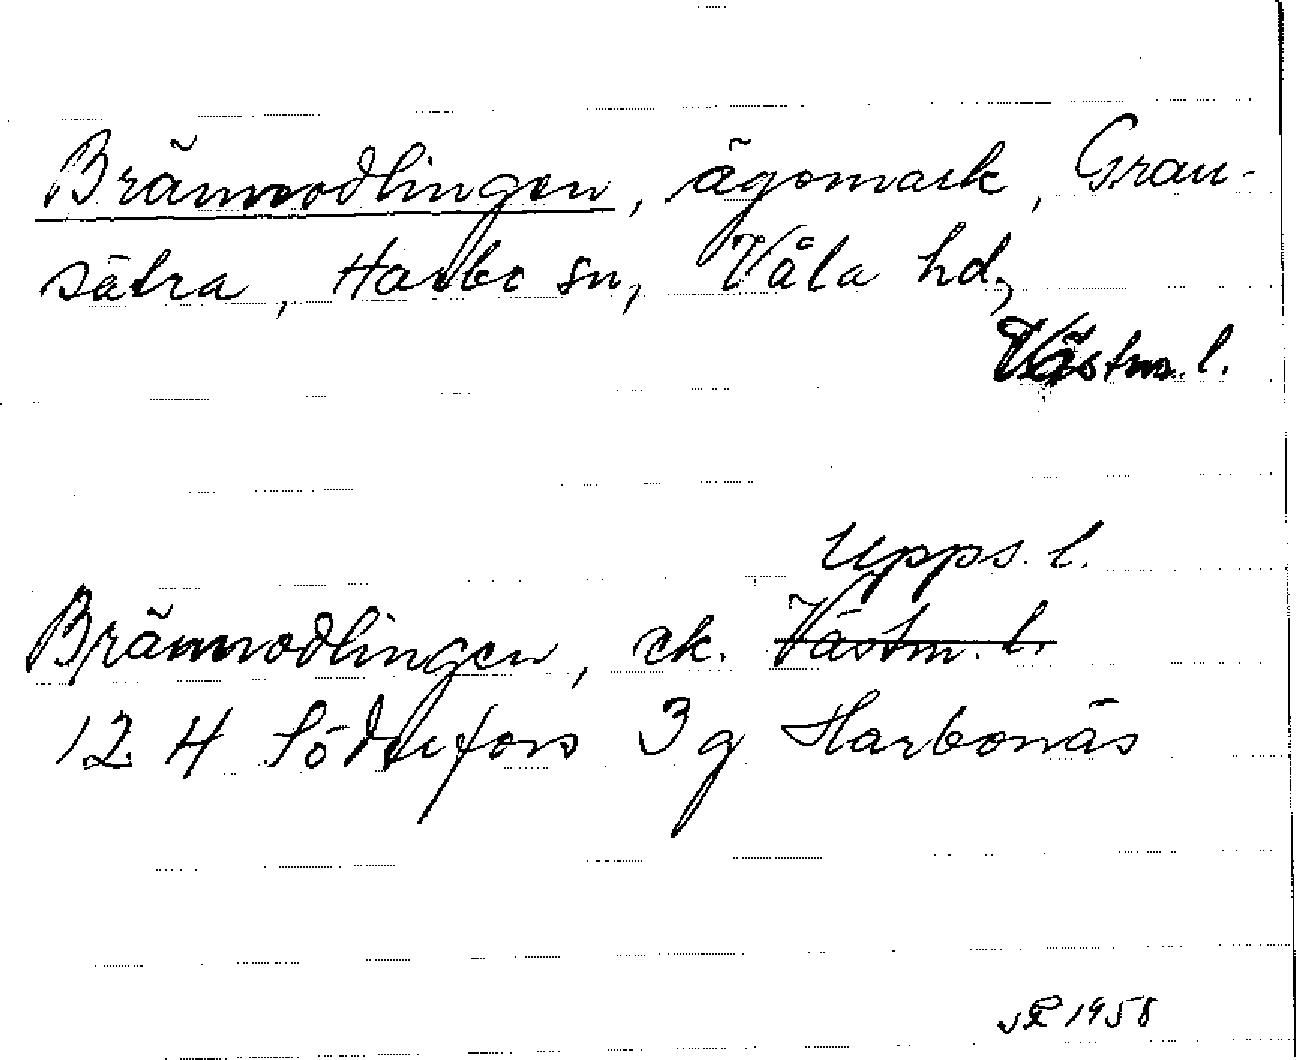 Brännodlingen, ägomark, Gran-
sätra, Harbo sn, Våla hd,
Västm. l.
Upps. l.
Brännodlingen, ek. Västm. l.
12 H Söderfors 3 g Harbonäs
1958